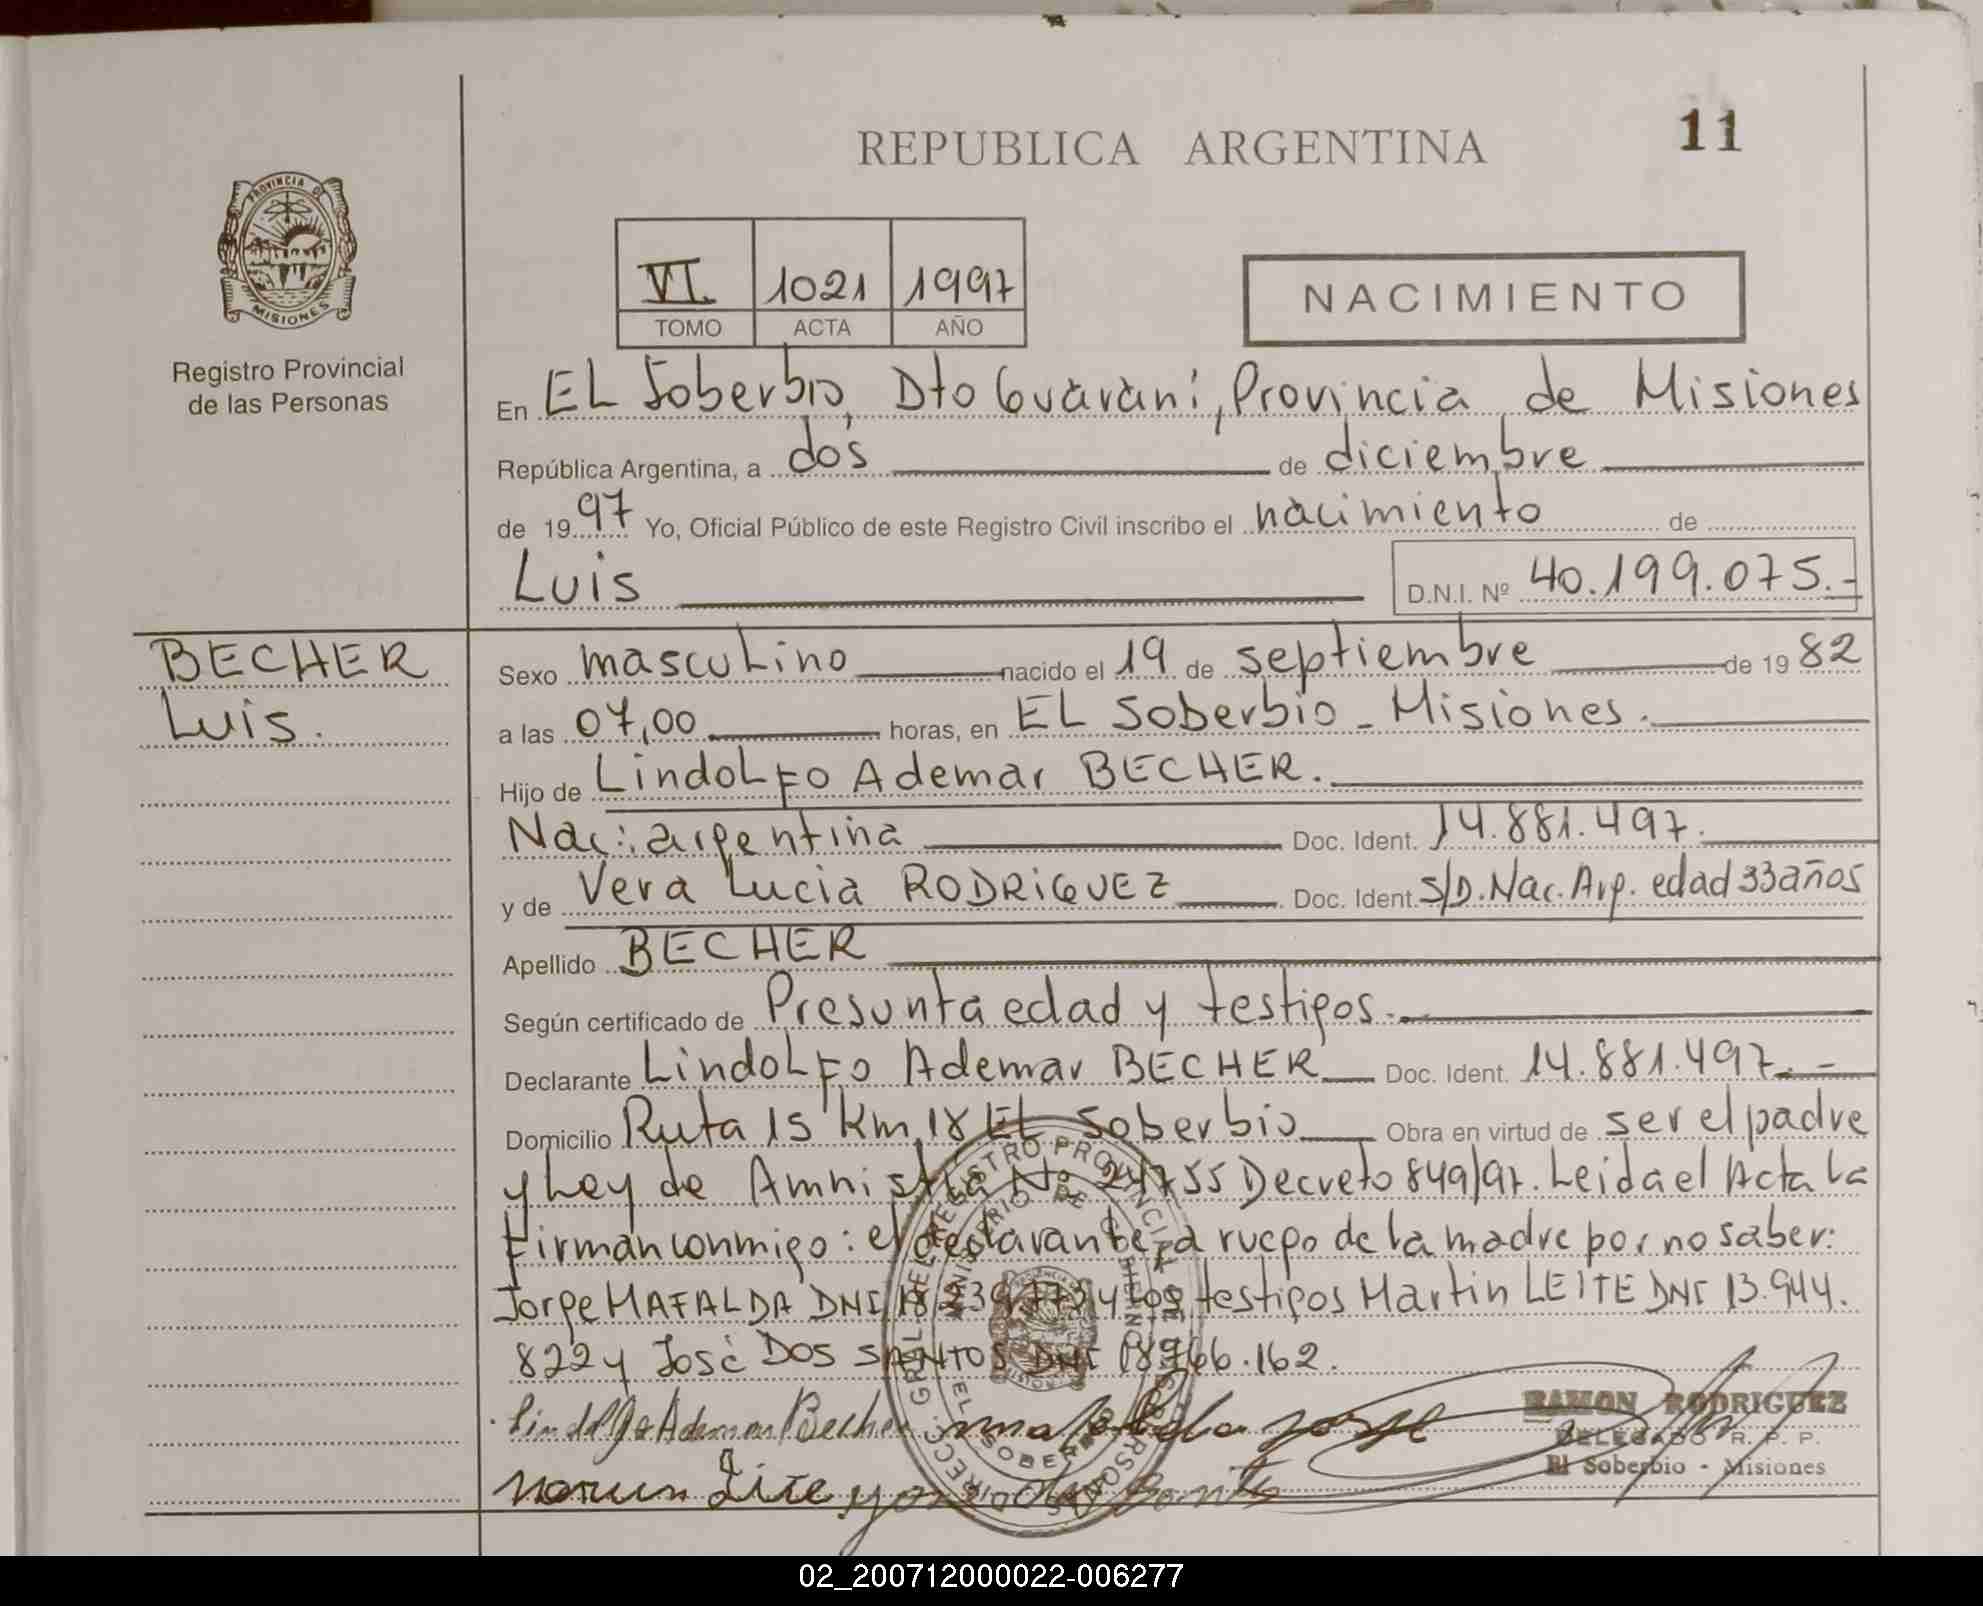 REPUBLICA ARGENTINA
11
PROVINCIA DE
MISIONES
Registro Provincial
de las Personas
VI 1021 1997
TOMO ACTA AÑO
NACIMIENTO
En EL Soberbio, Dto Guaraní, Provincia de Misiones
República Argentina, a dos de diciembre
de 1997 Yo, Oficial Público de este Registro Civil inscribo el nacimiento de
Luis D.N.I. Nº 40.199.075.-
BECHER
Luis.
Sexo masculino nacido el 19 de septiembre de 1982
a las 07,00 horas, en EL Soberbio - Misiones.
Hijo de Lindolfo Ademar BECHER.
Nac: argentina Doc. Ident. 14.881.497.
y de Vera Lucia RODRIGUEZ Doc. Ident. S/D. Nac. Arg. edad 33 años
Apellido BECHER
Según certificado de Presunta edad y testigos.
Declarante Lindolfo Ademar BECHER Doc. Ident. 14.881.497.-
Domicilio Ruta 15 Km 18 EL Soberbio Obra en virtud de ser el padre
y Ley de Amnistía Nº 24755 Decreto 849/97. Leida el Acta la
firman conmigo: el declarante, a ruego de la madre por no saber:
Jorge MAFALDA DNI y los testigos Martin LEITE DNI 13.944.
822 y José DOS SANTOS DNI 18766.162.
Lindolfo Ademar Becher mafalda jorge
RAMON RODRIGUEZ
DELEGADO R. P. P.
El Soberbio - Misiones
02_200712000022-006277